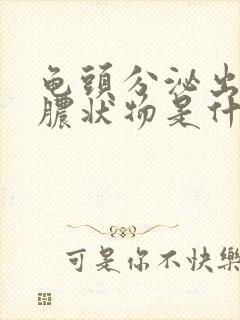 龟頭分泌出
膿狀物是什
可是你不快樂